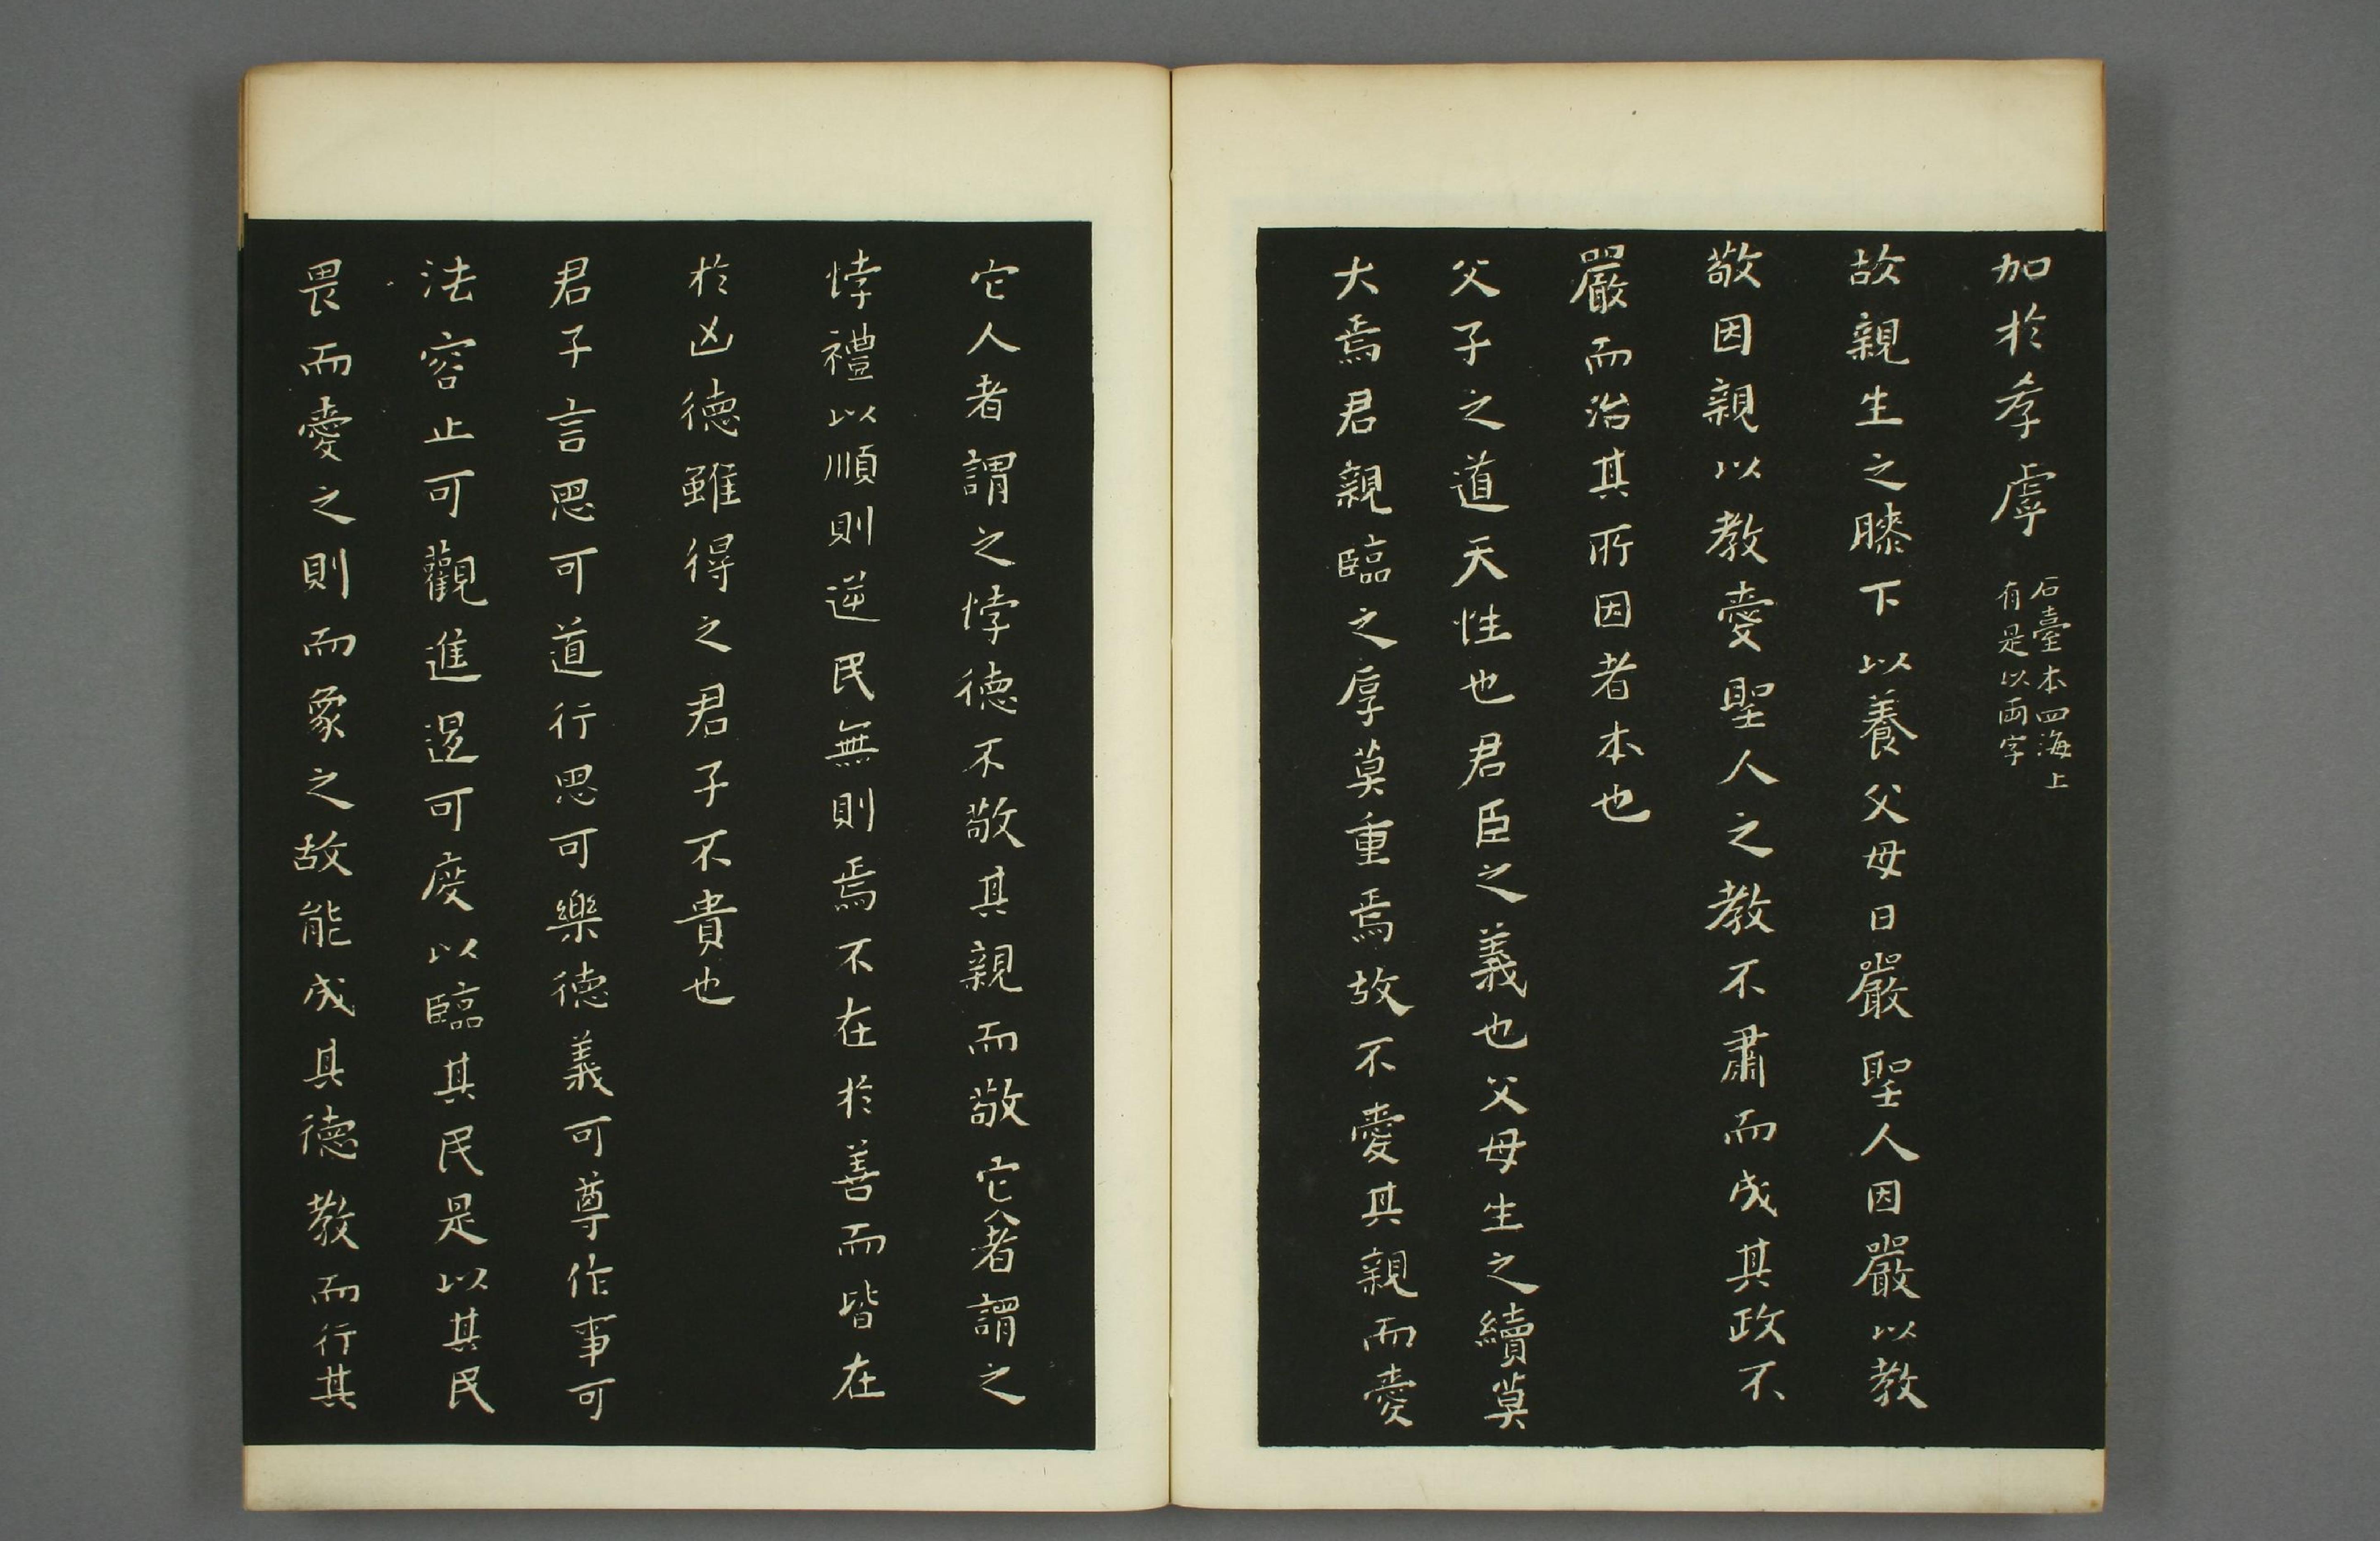 加於孝虖
石臺本四海上
有是以両字
故親生之膝下以養父母日嚴聖人因嚴以教
敬因親以教愛聖人之教不肅而成其政不
嚴而治其所因者本也
父子之道天性也君臣之義也父母生之續莫
大焉君親臨之厚莫重焉故不愛其親而愛
它人者謂之悖德不敬其親而敬它人者謂之
悖禮以順則逆民無則焉不在於善而皆在
於凶德雖得之君子不貴也
君子言思可道行思可樂德義可尊作事可
法容止可觀進退可度以臨其民是以其民
畏而愛之則而象之故能成其德教而行其